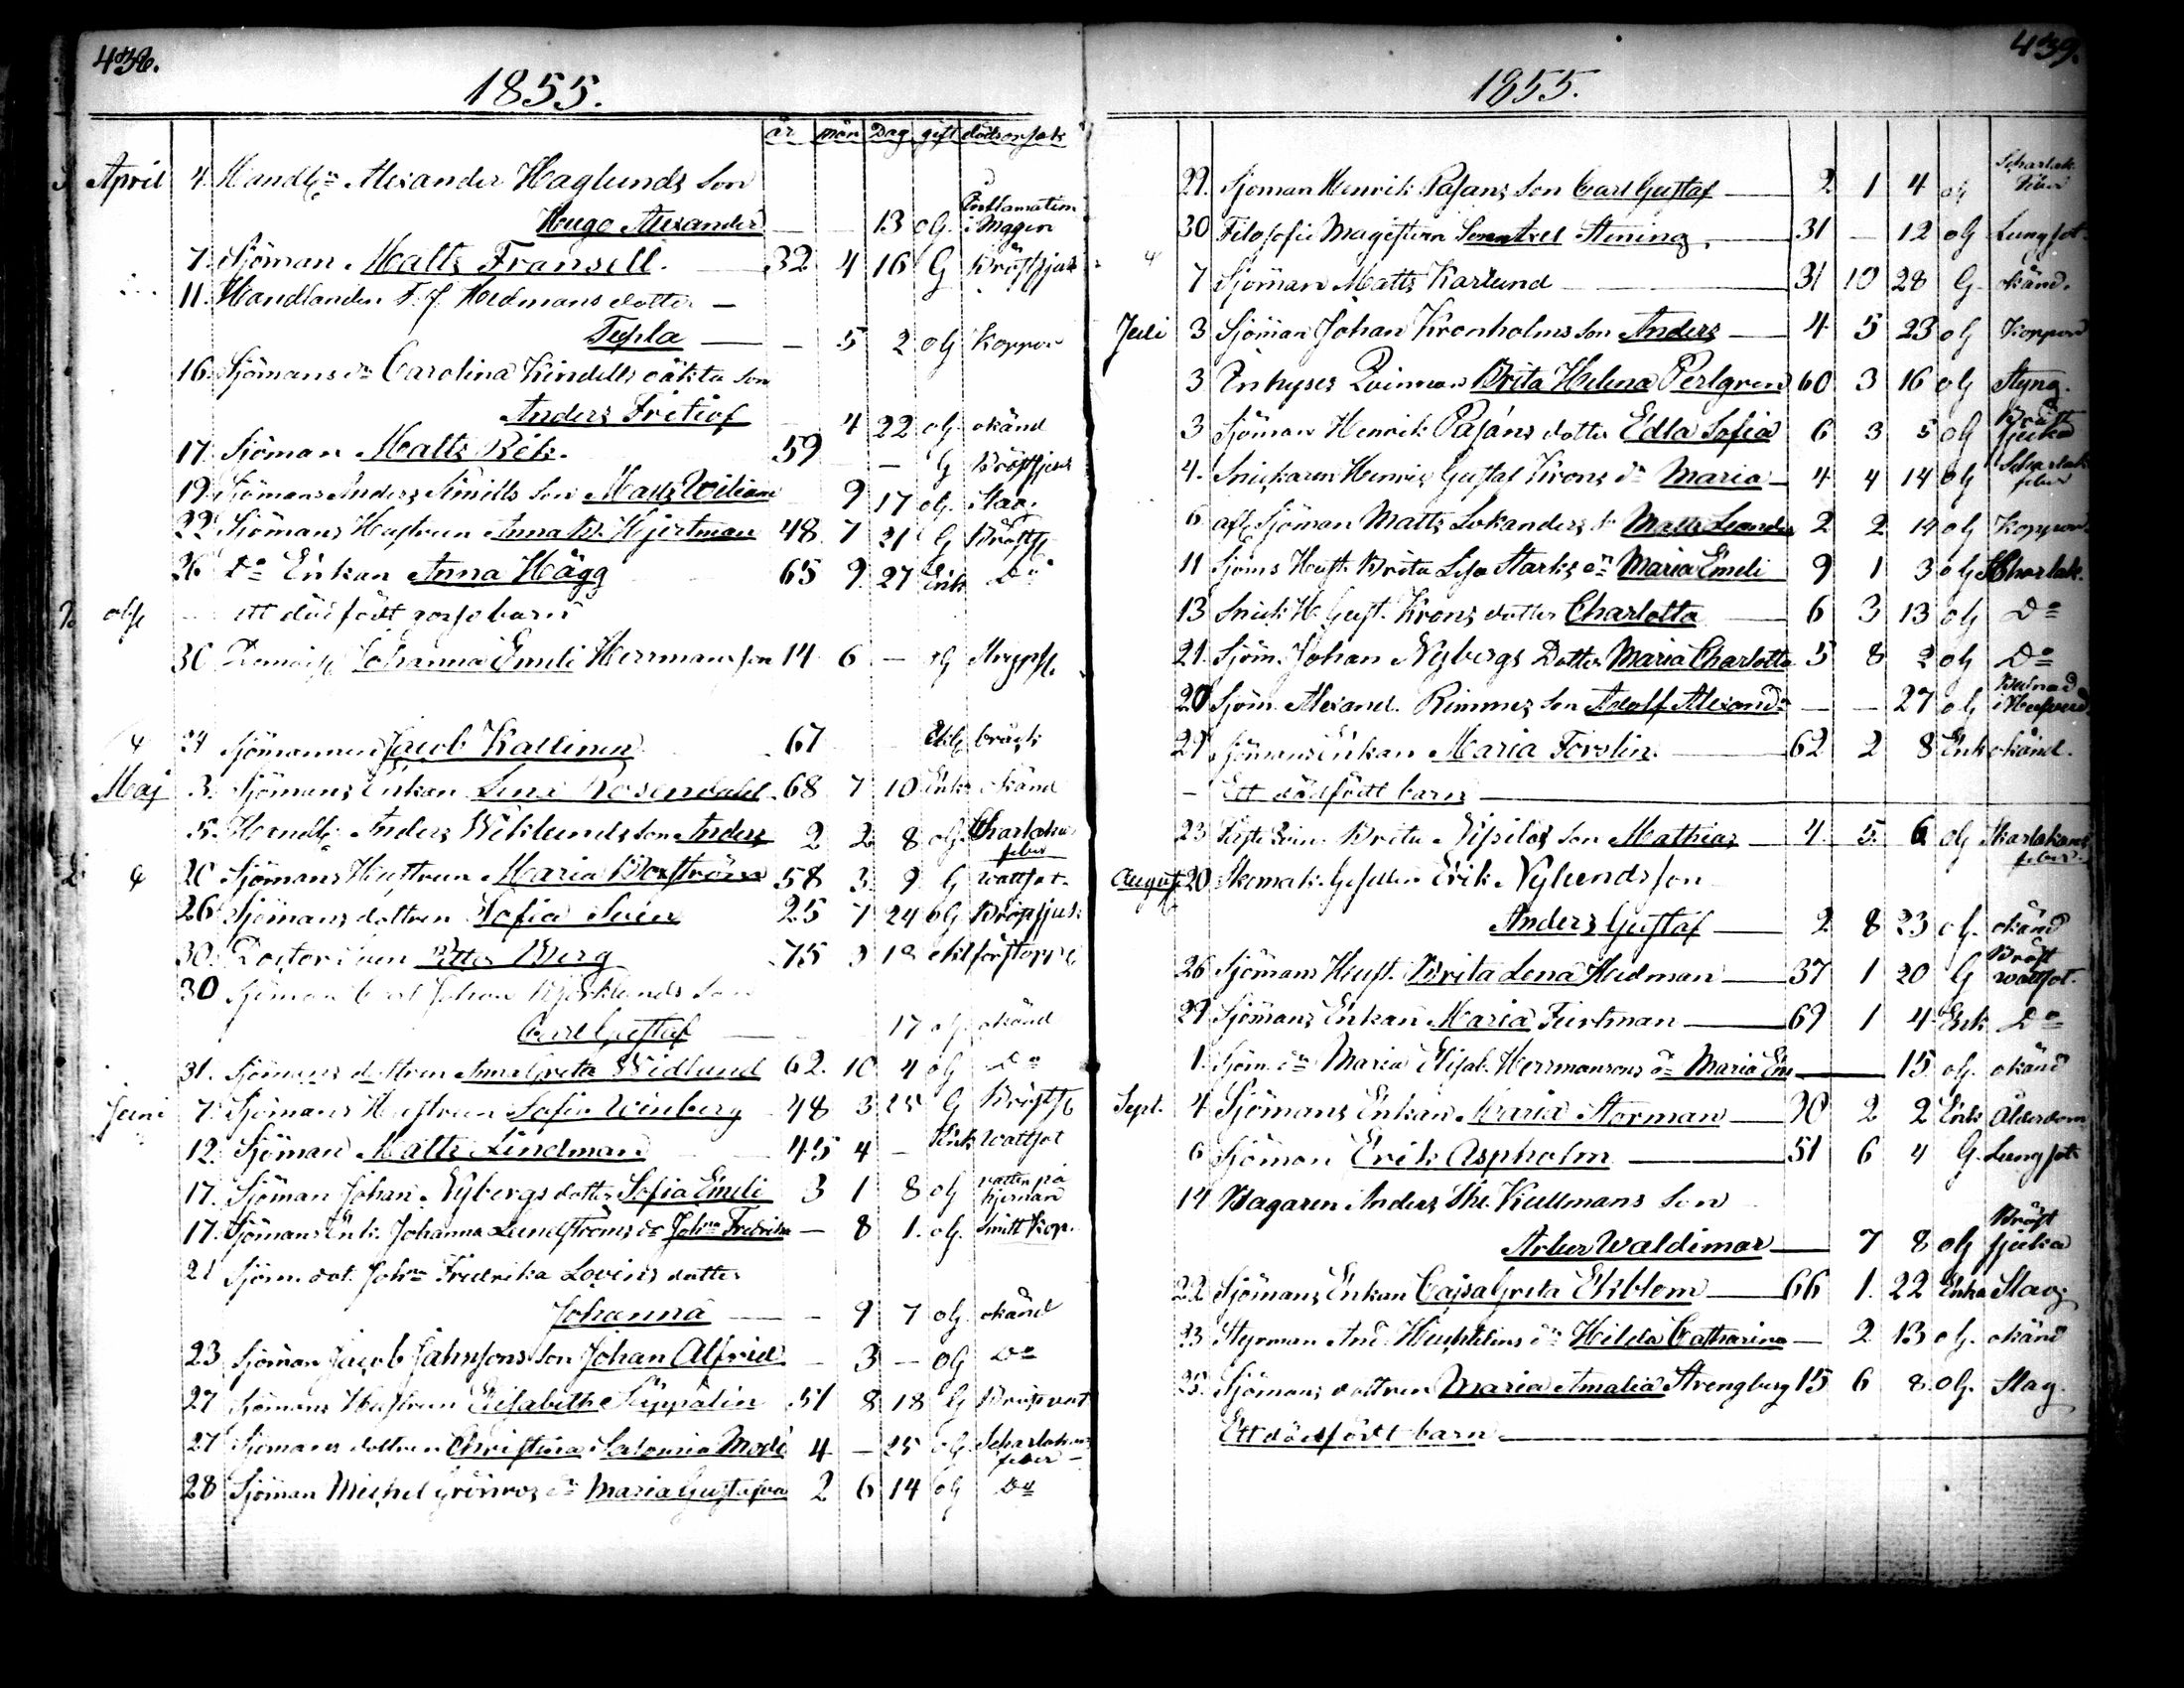 438.
1855.
år mån Dag gift dödsorsak
April 4. Handl. Alexander Haglunds Son
Hugo Alexander — — 13 og. Inflamation i Magen
7. Sjöman Matts Fransell. 32 4 16 G Bröstsjuk
11. Handlanden F. J. Hedmans dotter —
Tekla — — 5 2 og Koppor
16. Sjömans dr Carolina Kindells oäkta son
Anders Fritiof 4 22 og. okänd
17. Sjöman Matts Rek. 59 — G Bröstsjuk
19. Sjömans Anders Simills Son Matts Wiliam 9 17 og. Slag.
22 Sjömans Hustrun Anna B. Hjertman 48. 7 21 G Bröstsj
26 Do Enkan Anna Hägg 65 9. 27 Enk Do
ett dödfödt gossebarn
30 Demois. Johanna Emeli Herrmansson 14 6 — og Strypsj.
24 Sjömannen Jacob Kallinen 67 Enkl. bråck
Maj 3. Sjömans Enkan Lena Rosendahl 68 7 10 Enk okänd
5. Handl. Anders Wiklunds son Anders 2 2 8 og. Scharlakansfeber
20 Sjömans Hustrun Maria Boström 58 3. 9 G wattsot.
26 Sjömans dottren Sofia Svens 25 7 24 og Bröstsjuk
30. Petter Berg 75 9 18 enkl förstopp.
30 Sjöman Carl Johan Björklunds Son
Carl Gustaf 17 og. okänd
31. Sjömans dottren Anna Greta Widlund 62. 10. 4 og Do
Juni 7. Sjömans Hustrun Sofia Winberg 48 3 25 G Bröstsj
12. Sjöman Matts Lindman 45 4 — Enk wattsot
17. Sjöman Johan Nybergs dotter Sofia Emeli 3 1 8 og vatten på hjernan
17. Sjömans Enk. Johanna Lundströms dr Joha Fredrika — 8 1. og. Smitt Kop.
21 Sjöm. dot. Joha Fredrika Lovins dotter
Johanna — 9 7 og. okänd
23 Sjöman Jacob Jahnssons son Johan Alfrid — 3 — og Do
27 Sjömans Hustrun Elisabeth Seppälin 51 8 18 G Bröstvat
27 Sjömans dottren Christina Salomia Modé 4 — 25 og. Scharlakansfeber
28 Sjöman Michel Grönros dr Maria Gustafva 2 6 14 og Do
439.
1855.
29. Sjöman Henrik Pasans Son Carl Gustaf — 2 1 4 og Scharlak. feber
30 Filosofie Magistern Stening — 31 — 12 og Lungsot
7 Sjöman Matts Karlund — 31 10 28 G. okänd.
Juli 3 Sjöman Johan Kronholms son Anders — 4 5 23 og Koppor
3 Inhyses Qvinnan Brita Helena Perlgren 60 3 16 og Styng.
3 Sjöman Henrik Pasans dotter Edla Sofia 6 3 5 og Bröstsjuka
4. Snickaren Henric Gustaf Krons dr Maria — 4 4 14 og Scharlak feber
6 afl. Sjöman Matts Lokanders Matts Leander 2 2 14 og Koppor
11 Sjöms Hust. Brita Lisa Starks dr Maria Emeli 9 1 3 og Scharlak.
13 Snick H. Gust. Krons dotter Charlotta — 6 3 13 og Do
21. Sjöm. Johan Nybergs Dotter Maria Charlotta 5 8 2 og Do
20 Sjöm. Alexand. Rimmes Son Adolf Alexand. — — 27 og
29 Sjömans Enkan Maria Forslin. — 62 2 8 Enk okänd.
— Ett dödfödt barn —
23 Brita son Mathias — 4. 5. 6 og Skarlakansfeber
August 20 Skomak. Gesellen Erik Nylunds son
Anders Gustaf — 2 8 23 og. okänd
26 Sjömans Hust. Brita Lena Hedman — 37 1 20 G Bröst wattsot.
29 Sjömans Enkan Maria Furtman — 69 1 4 Enk Do
1. Sjöm. dr Maria Elisab. Herrmansons dr Maria Em — 15. og. okänd
Sept. 4 Sjömans Enkan Maria Storman — 90 2 2 Enk Ålderdom
6 Sjöman Erik Aspholm — 51 6 4 G. Lungsot
14 Bagaren Anders Kullmans Son
Artur Waldimar — 7 8 og Bröst sjuka
22 Sjömans Enkan Cajsa Greta Ekblom — 66 1. 22 Enka Slag.
23 Styrman And. dr Hilda Catharina — 2 13 og. okänd
25. Sjömans dottren Maria Amalia Strengberg 15 6 8. og. Slag.
Ett dödfödt barn —